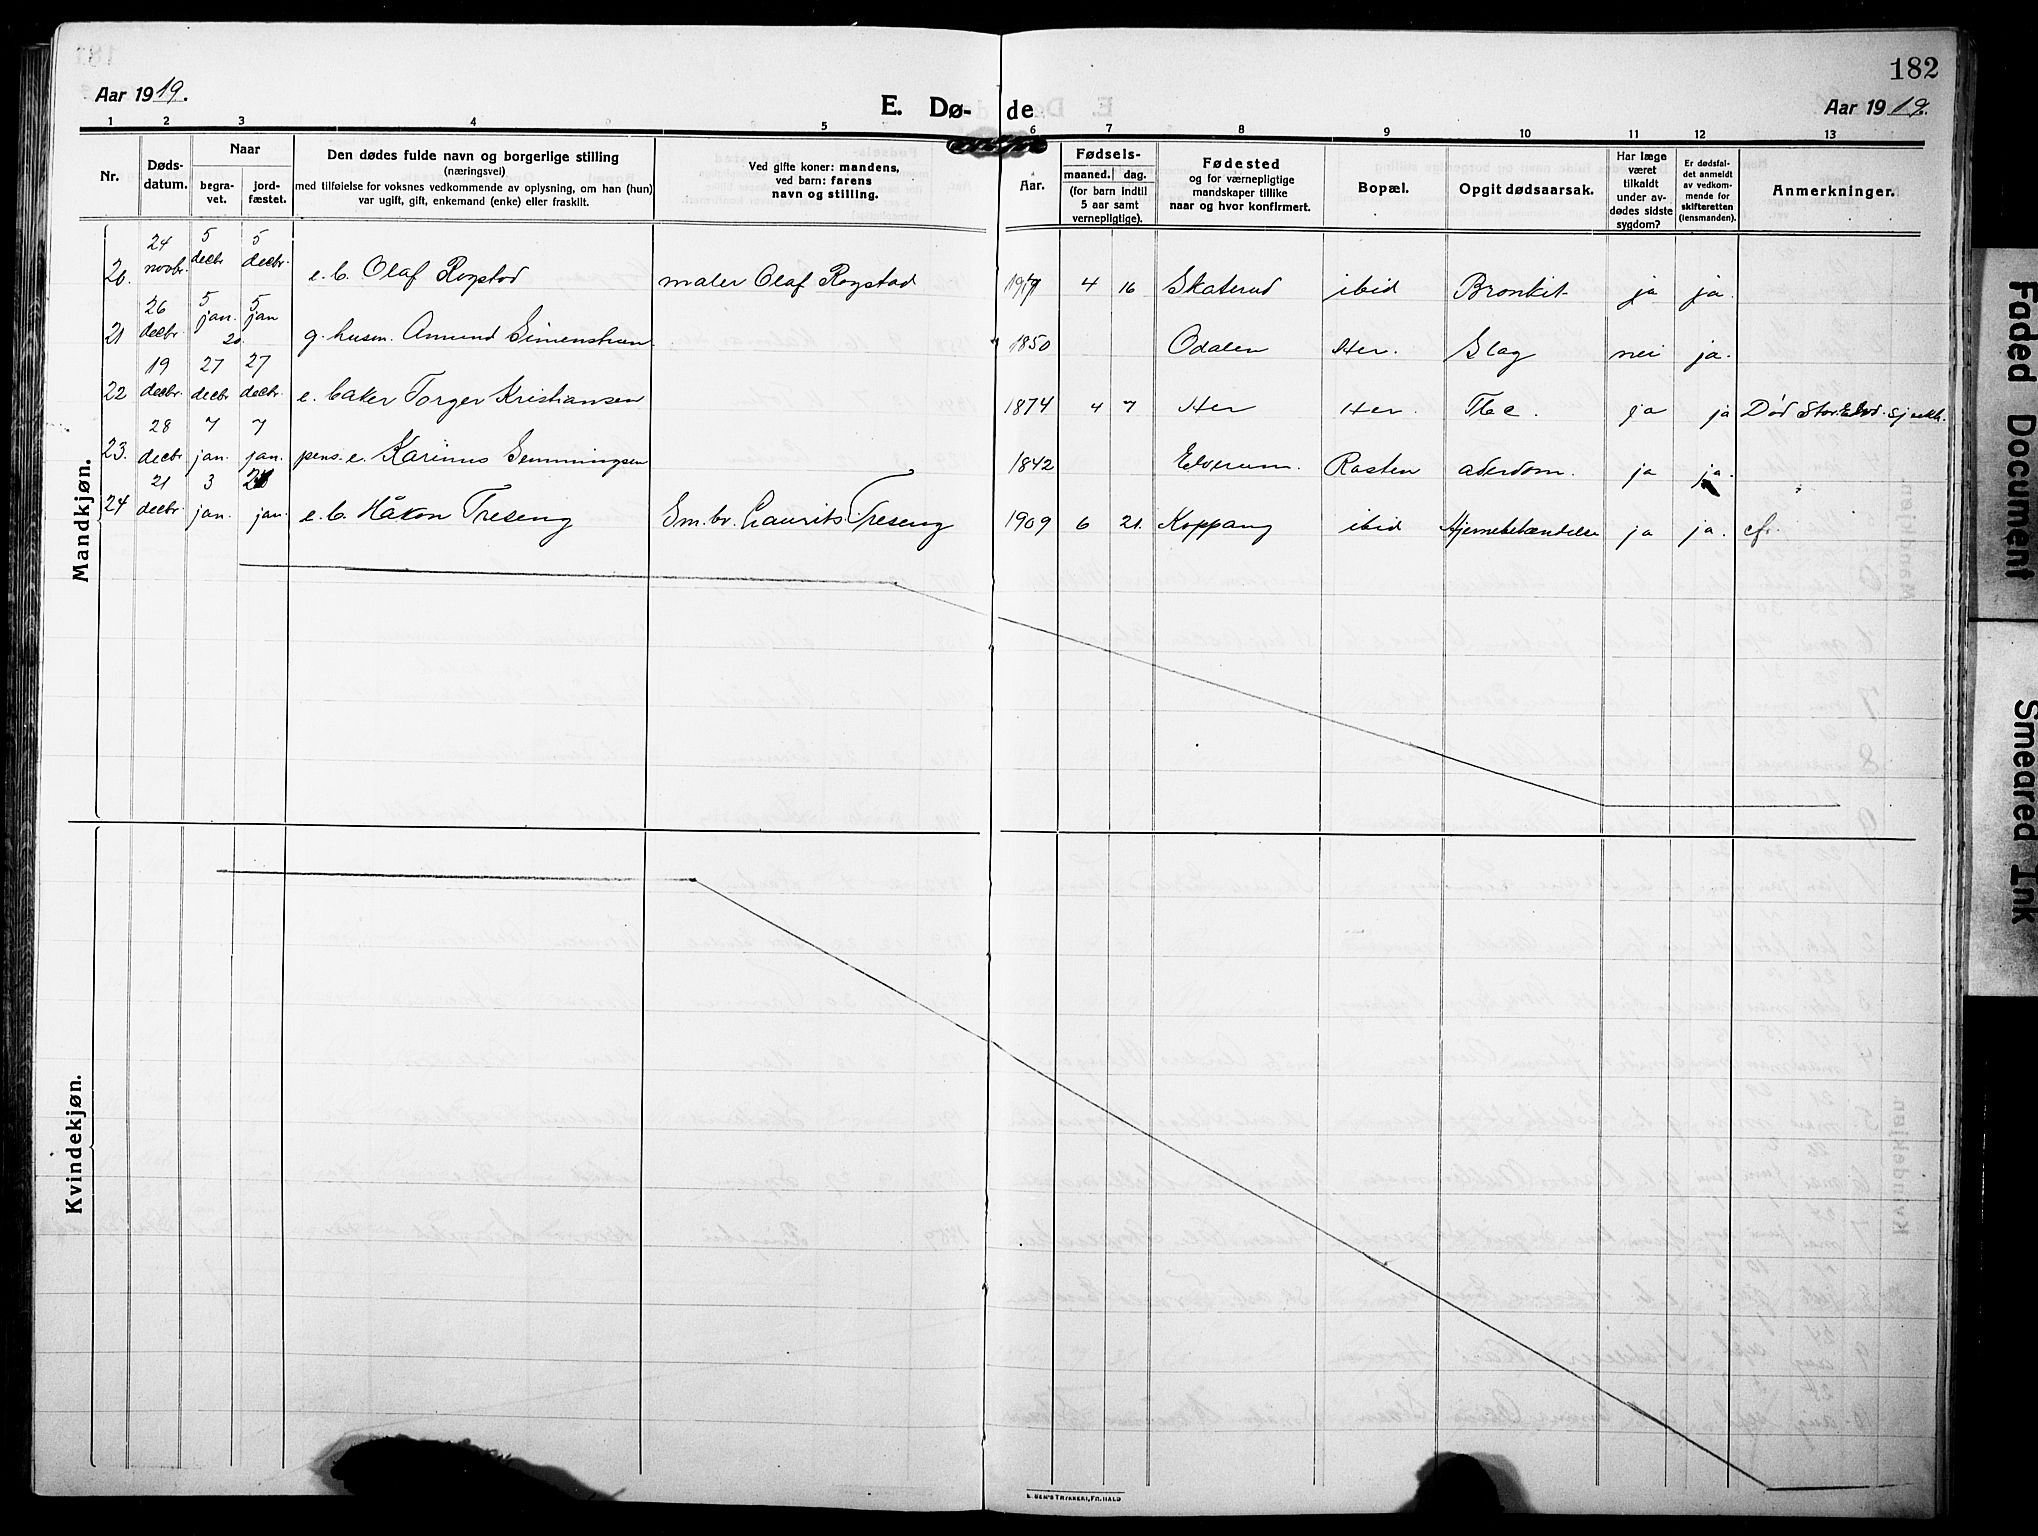 182
Aar 1919.
E. Dø-
de
Aar 1919.
1 2 3 4 5 6 7 8 9 10 11 12 13
Nr.
Døds-
datum.
Naar
begra-
vet.
jord-
fæstet.
Den dødes fulde navn og borgerlige stilling
(næringsvei)
med tilføielse for voksnes vedkommende av oplysning, om han (hun)
var ugift, gift, enkemand (enke) eller fraskilt.
Ved gifte koner: mandens,
ved barn: farens
navn og stilling.
Aar.
Fødsels-
maaned. dag.
(for barn indtil
5 aar samt
vernepligtige).
Fødested
og for værnepligtige
mandskaper tillike
naar og hvor konfirmert.
Bopæl.
Opgit dødsaarsak.
Har læge
været
tilkaldt
under av-
dødes sidste
sygdom?
Er dødsfal-
det anmeldt
av vedkom-
mende for
skifteretten
(lensmanden).
Anmerkninger.
Mandkjøn.
20. 24 novbr. 5 decbr 5 decbr. e.b. Olaf Rogstad maler Olaf Rogstad 4 16 Skaterud ibid Bronkit ja ja.
21 26 decbr. 5 jan. 5 jan g. husm. Amund Simenstuen 1850 Odalen Her. Slag nei ja.
22 19 decbr. 27 decbr 27 decbr. e. baker Torger Kristiansen 1874 4 7 Her Her. Tbc. ja ja Død Stor-Elvd. sjukh.
23. 28 decbr. 7 jan. 7 jan. pens. e. Karinus Gemmingsen 1842 Elverum. Rasten alderdom. ja ja.
24 21 decbr. 3 jan. jan. e.b. Håkon Treseng Sm.br. Laurits Treseng 1909 6 21. Koppang ibid Hjernebetændelse ja ja. cfr.
Kvindekjøn.
Faded Document
Smeared Ink